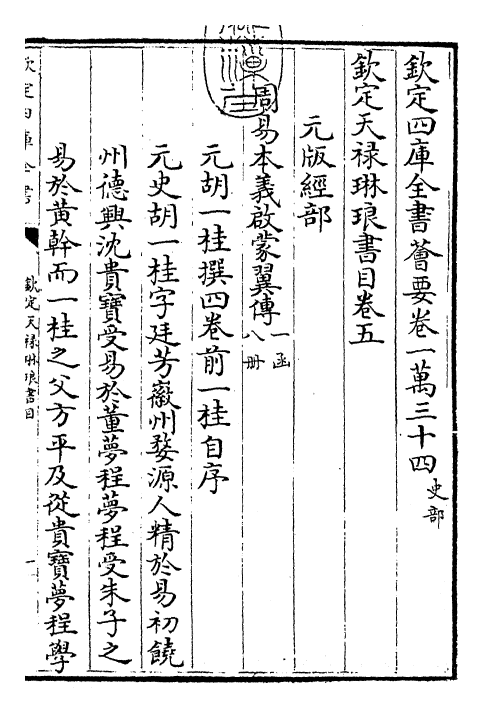 欽定四庫全書薈要卷一萬三千四史部
欽定天祿琳琅書目卷五
元版經部
周易本義啟蒙翼傳一函八册
元胡一桂撰四卷前一桂自序
元史胡一桂字廷芳徽州婺源人精於易初饒
州德興沈貴寶受易於董夢程夢程受朱子之
易於黃幹而一桂之父方平及從貴寶夢程學
欽定四庫全書
欽定天祿琳琅書目
一